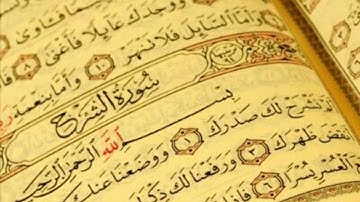 وَوَجَدَكَ عَآئِلًا فَأَغْنَىٰ
وَأَمَّا السَّآئِلَ فَلَا تَنْهَرْ ١٠ وَأَمَّا بِنِعْمَةِ
سُورَةُ الشَّرْحِ
بِسْمِ اللَّهِ الرَّحْمَٰنِ الرَّحِيمِ
أَلَمْ نَشْرَحْ لَكَ صَدْرَكَ ١ وَوَضَعْنَا عَنكَ
أَنقَضَ ظَهْرَكَ ٣ وَرَفَعْنَا لَكَ
الْعُسْرِ يُسْرًا ٦ فَإِذَا